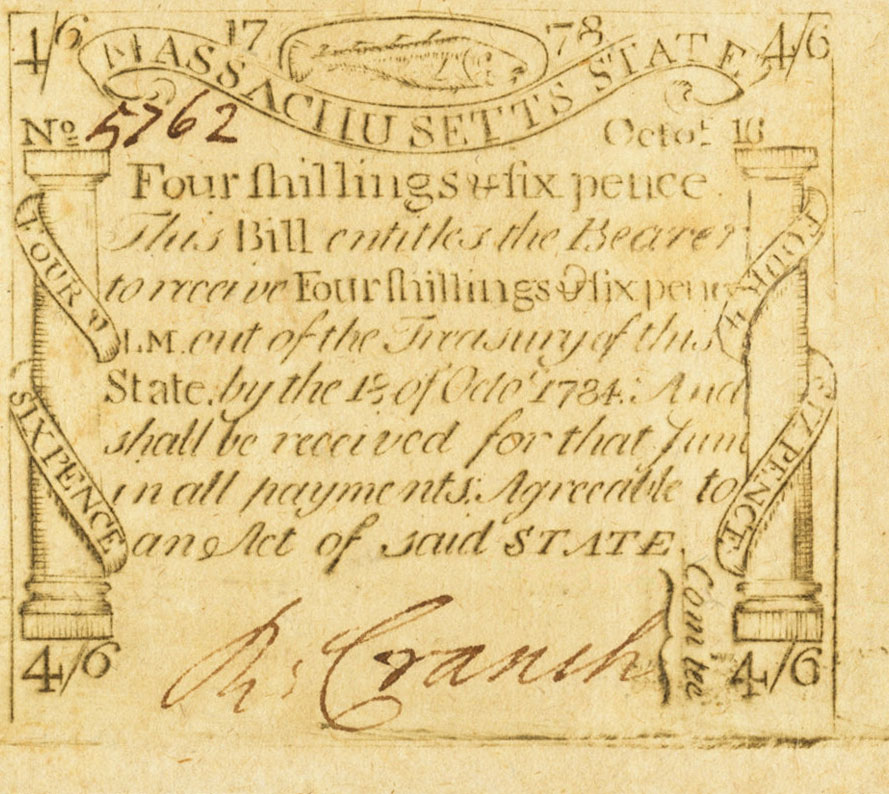 4/6 17 78 4/6
MASSACHUSETTS STATE
No 5762 Octor. 16
Four ſhillings & ſix pence.
This Bill entitles the Bearer
to receive Four ſhillings & ſix pence
L.M. out of the Treasury of this
State, by the 1st of Octor 1784. And
shall be received for that Sum
in all payments, Agreeable to
an Act of said STATE.
FOUR S
SIXPENCE
FOUR S
SIXPENCE
Rd: Cranch
Com'tee
4/6 4/6